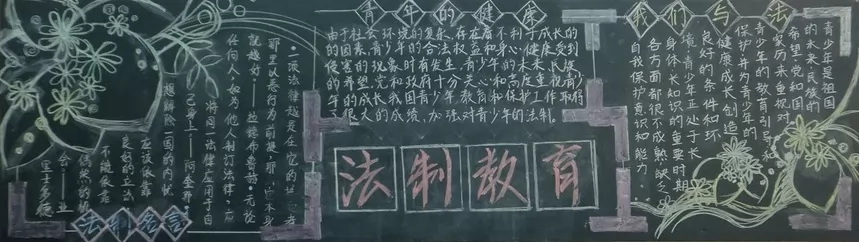 青年的健康
由于社会环境的复杂,存在着不利于成长的
的因素,青少年的合法权益和身心健康受到
侵害的现象时有发生,青少年的未来,民族
的希望,党和政府十分关心和高度重视青少
年的成长,我国青少年教育和保护工作取得
了很大的成绩,加强对青少年的法制。
法制教育
我们与法
青少年是祖国
的未来,民族的
希望,党和国
家历来重视对
青少年的教育引导和
保护,并为青少年的
健康成长创造
良好的条件和环
境,青少年正处于长
身体长知识的重要时期
各方面都很不成熟,缺乏
自我保护意识和能力。
法制名言
一项法律越是在它的
那里以恶行为前提,那
就越好——拉德布鲁赫·无论
任何人,如为他人制订法律,应
将同一法律应用于自
己身上——阿奎那
越解除一国的内忧
应该依靠
良好的立法
不能依靠
偶然的机
会
里士多德